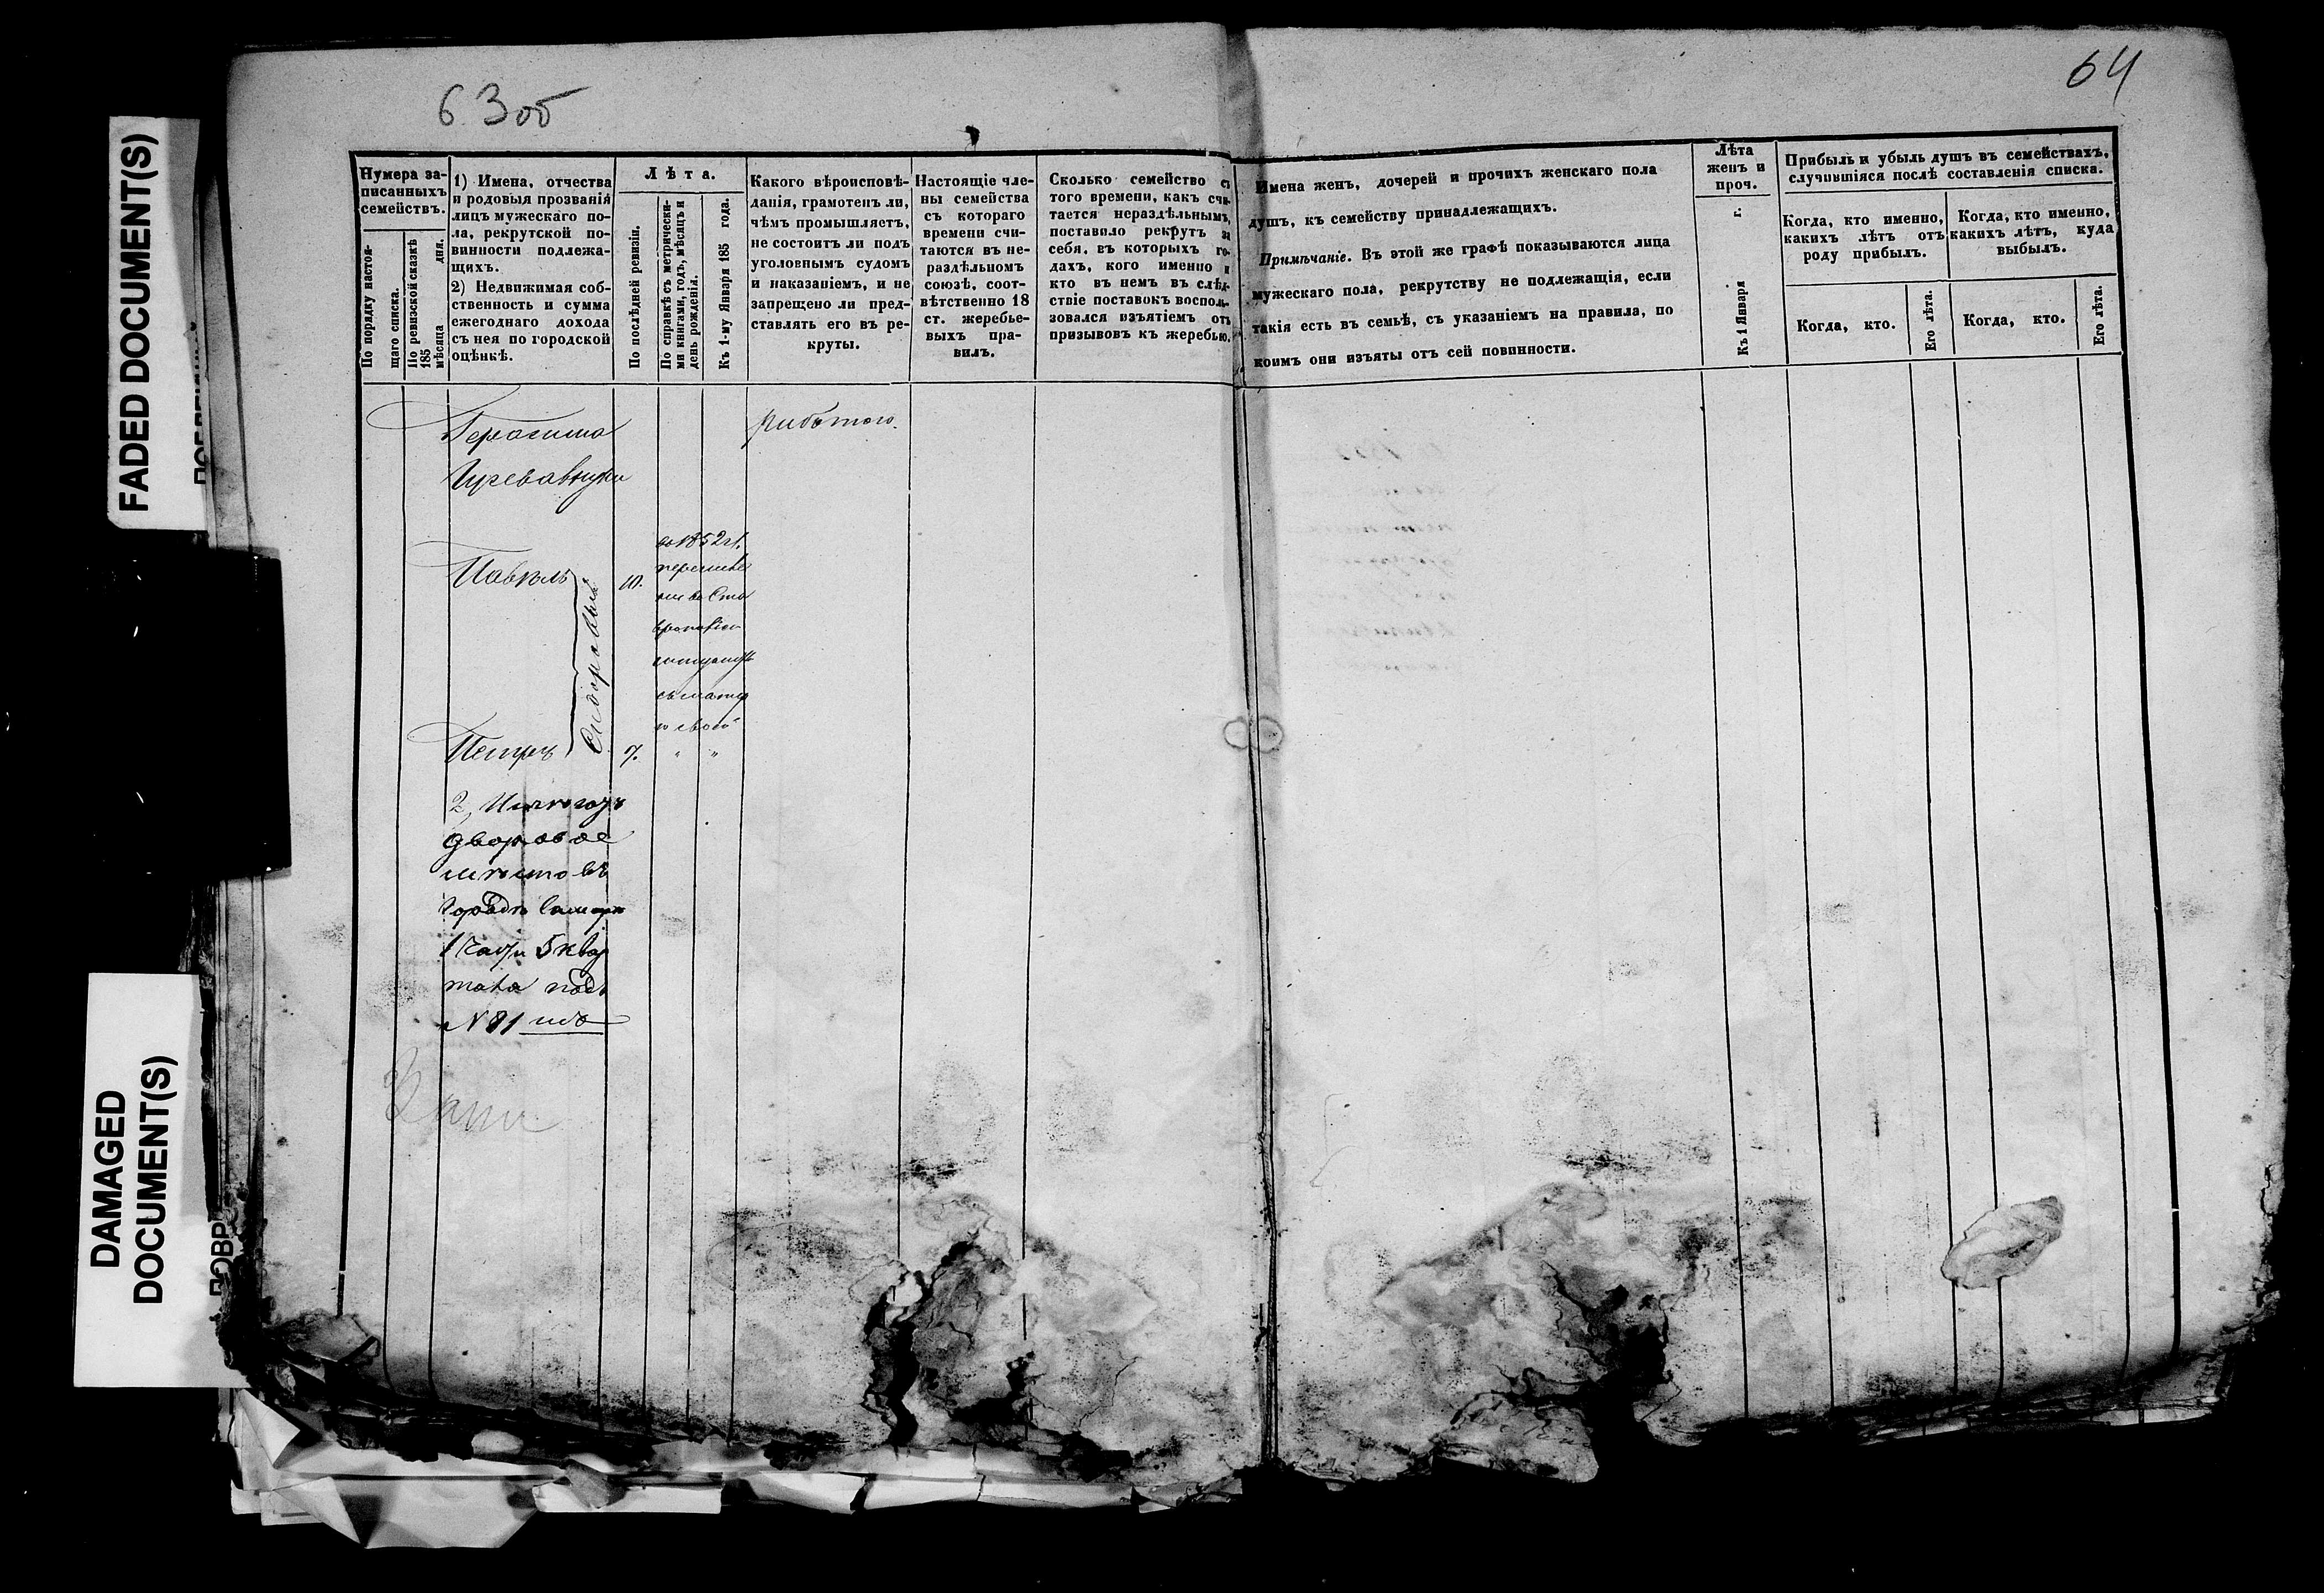 63 об
64
FADED DOCUMENT(S)
DAMAGED
DOCUMENT(S)
ПОВР
Нумера за-
писанныхъ
семействъ.
По порядку настоя-
щаго списка.
По ревизской сказкѣ
185
мѣсяца дня.
1) Имена, отчества
и родовыя прозванія
лицъ мужескаго по-
ла, рекрутской по-
винности подлежа-
щихъ.
2) Недвижимая соб-
ственность и сумма
ежегоднаго дохода
съ нея по городской
оцѣнкѣ.
Лѣта.
По послѣдней ревизіи.
По справкѣ съ метрически-
ми книгами, годъ, мѣсяцъ и
день рожденія.
Къ 1-му Января 185 года.
Какого вѣроисповѣ-
данія, грамотенъ ли,
чѣмъ промышляетъ,
не состоитъ ли подъ
уголовнымъ судомъ
и наказаніемъ, и не
запрещено ли пред-
ставлять его въ ре-
круты.
Настоящіе чле-
ны семейства
съ котораго
времени счи-
таются въ не-
раздѣльномъ
союзѣ, соот-
вѣтственно 18
ст. жеребье-
выхъ пра-
вилъ.
Сколько семейство съ
того времени, какъ счи-
тается нераздѣльнымъ,
поставило рекрутъ за
себя, въ которыхъ го-
дахъ, кого именно и
кто въ немъ въ слѣд-
ствіе поставокъ восполь-
зовался изъятіемъ отъ
призывовъ къ жеребью.
Имена женъ, дочерей и прочихъ женскаго пола
душъ, къ семейству принадлежащихъ.
Примѣчаніе. Въ этой же графѣ показываются лица
мужескаго пола, рекрутству не подлежащія, если
такія есть въ семьѣ, съ указаніемъ на правила, по
коимъ они изъяты отъ сей повинности.
Лѣта
женъ и
проч.
Къ 1 Января г.
Прибыль и убыль душъ въ семействахъ,
случившіяся послѣ составленія списка.
Когда, кто именно,
какихъ лѣтъ отъ
роду прибылъ.
Когда, кто именно,
какихъ лѣтъ, куда
выбылъ.
Когда, кто.
Его лѣта.
Когда, кто.
Его лѣта.
Герасима
работою.
Павелъ
10.
во 1852 г.
перечисле
ны въ Ста
Сидоровы
съ матер
ю своею
Петръ
7.
" "
2, Имѣютъ
дворовое
мѣсто въ
городѣ Самарѣ
1 части 5 квар
тала подъ
N 81